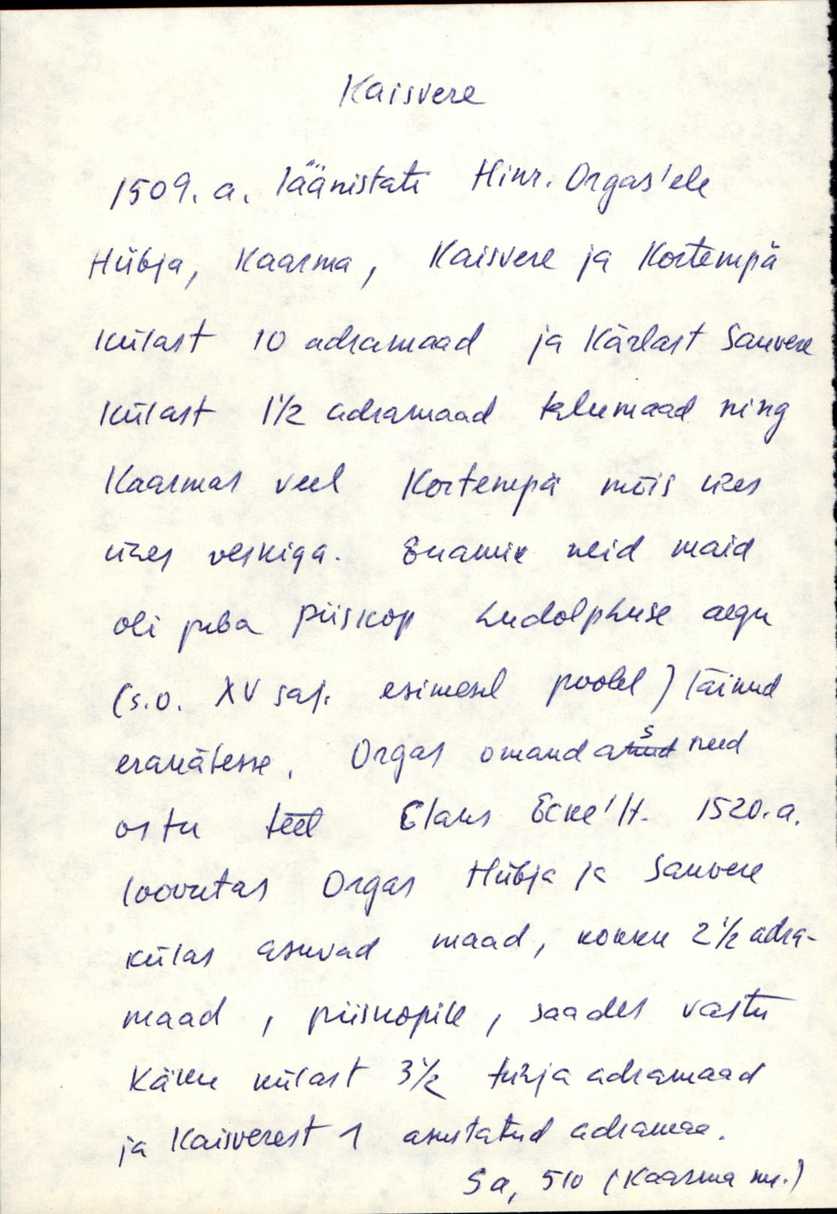 Kaisvere
1509. a. läänistati Hinr. Orgas'ele
Hübja, Kaarma, Kaisvere ja Kortempä
külast 10 adramaad ja Kärlast Sauvere
külast 1 1/2 adramaad talumaad ning
Kaarmas veel Kortempä mõis ühes
ühes veskiga. Enamik neid maid
oli juba piiskop Ludolphuse aegu
(s.o. XV saj. esimesel poolel) läinud
erakätesse. Orgas omandas need
ostu teel Claus Ecke'lt. 1520. a.
loovutas Orgas Hübja ja Sauvere
külas asuvad maad, kokku 2 1/2 adra-
maad, piiskopile, saades vastu
Käku külast 3 1/2 tühja adramaad
ja Kaisverest 1 asustatud adramaa.
Sa, 510 (Kaarma khk.)